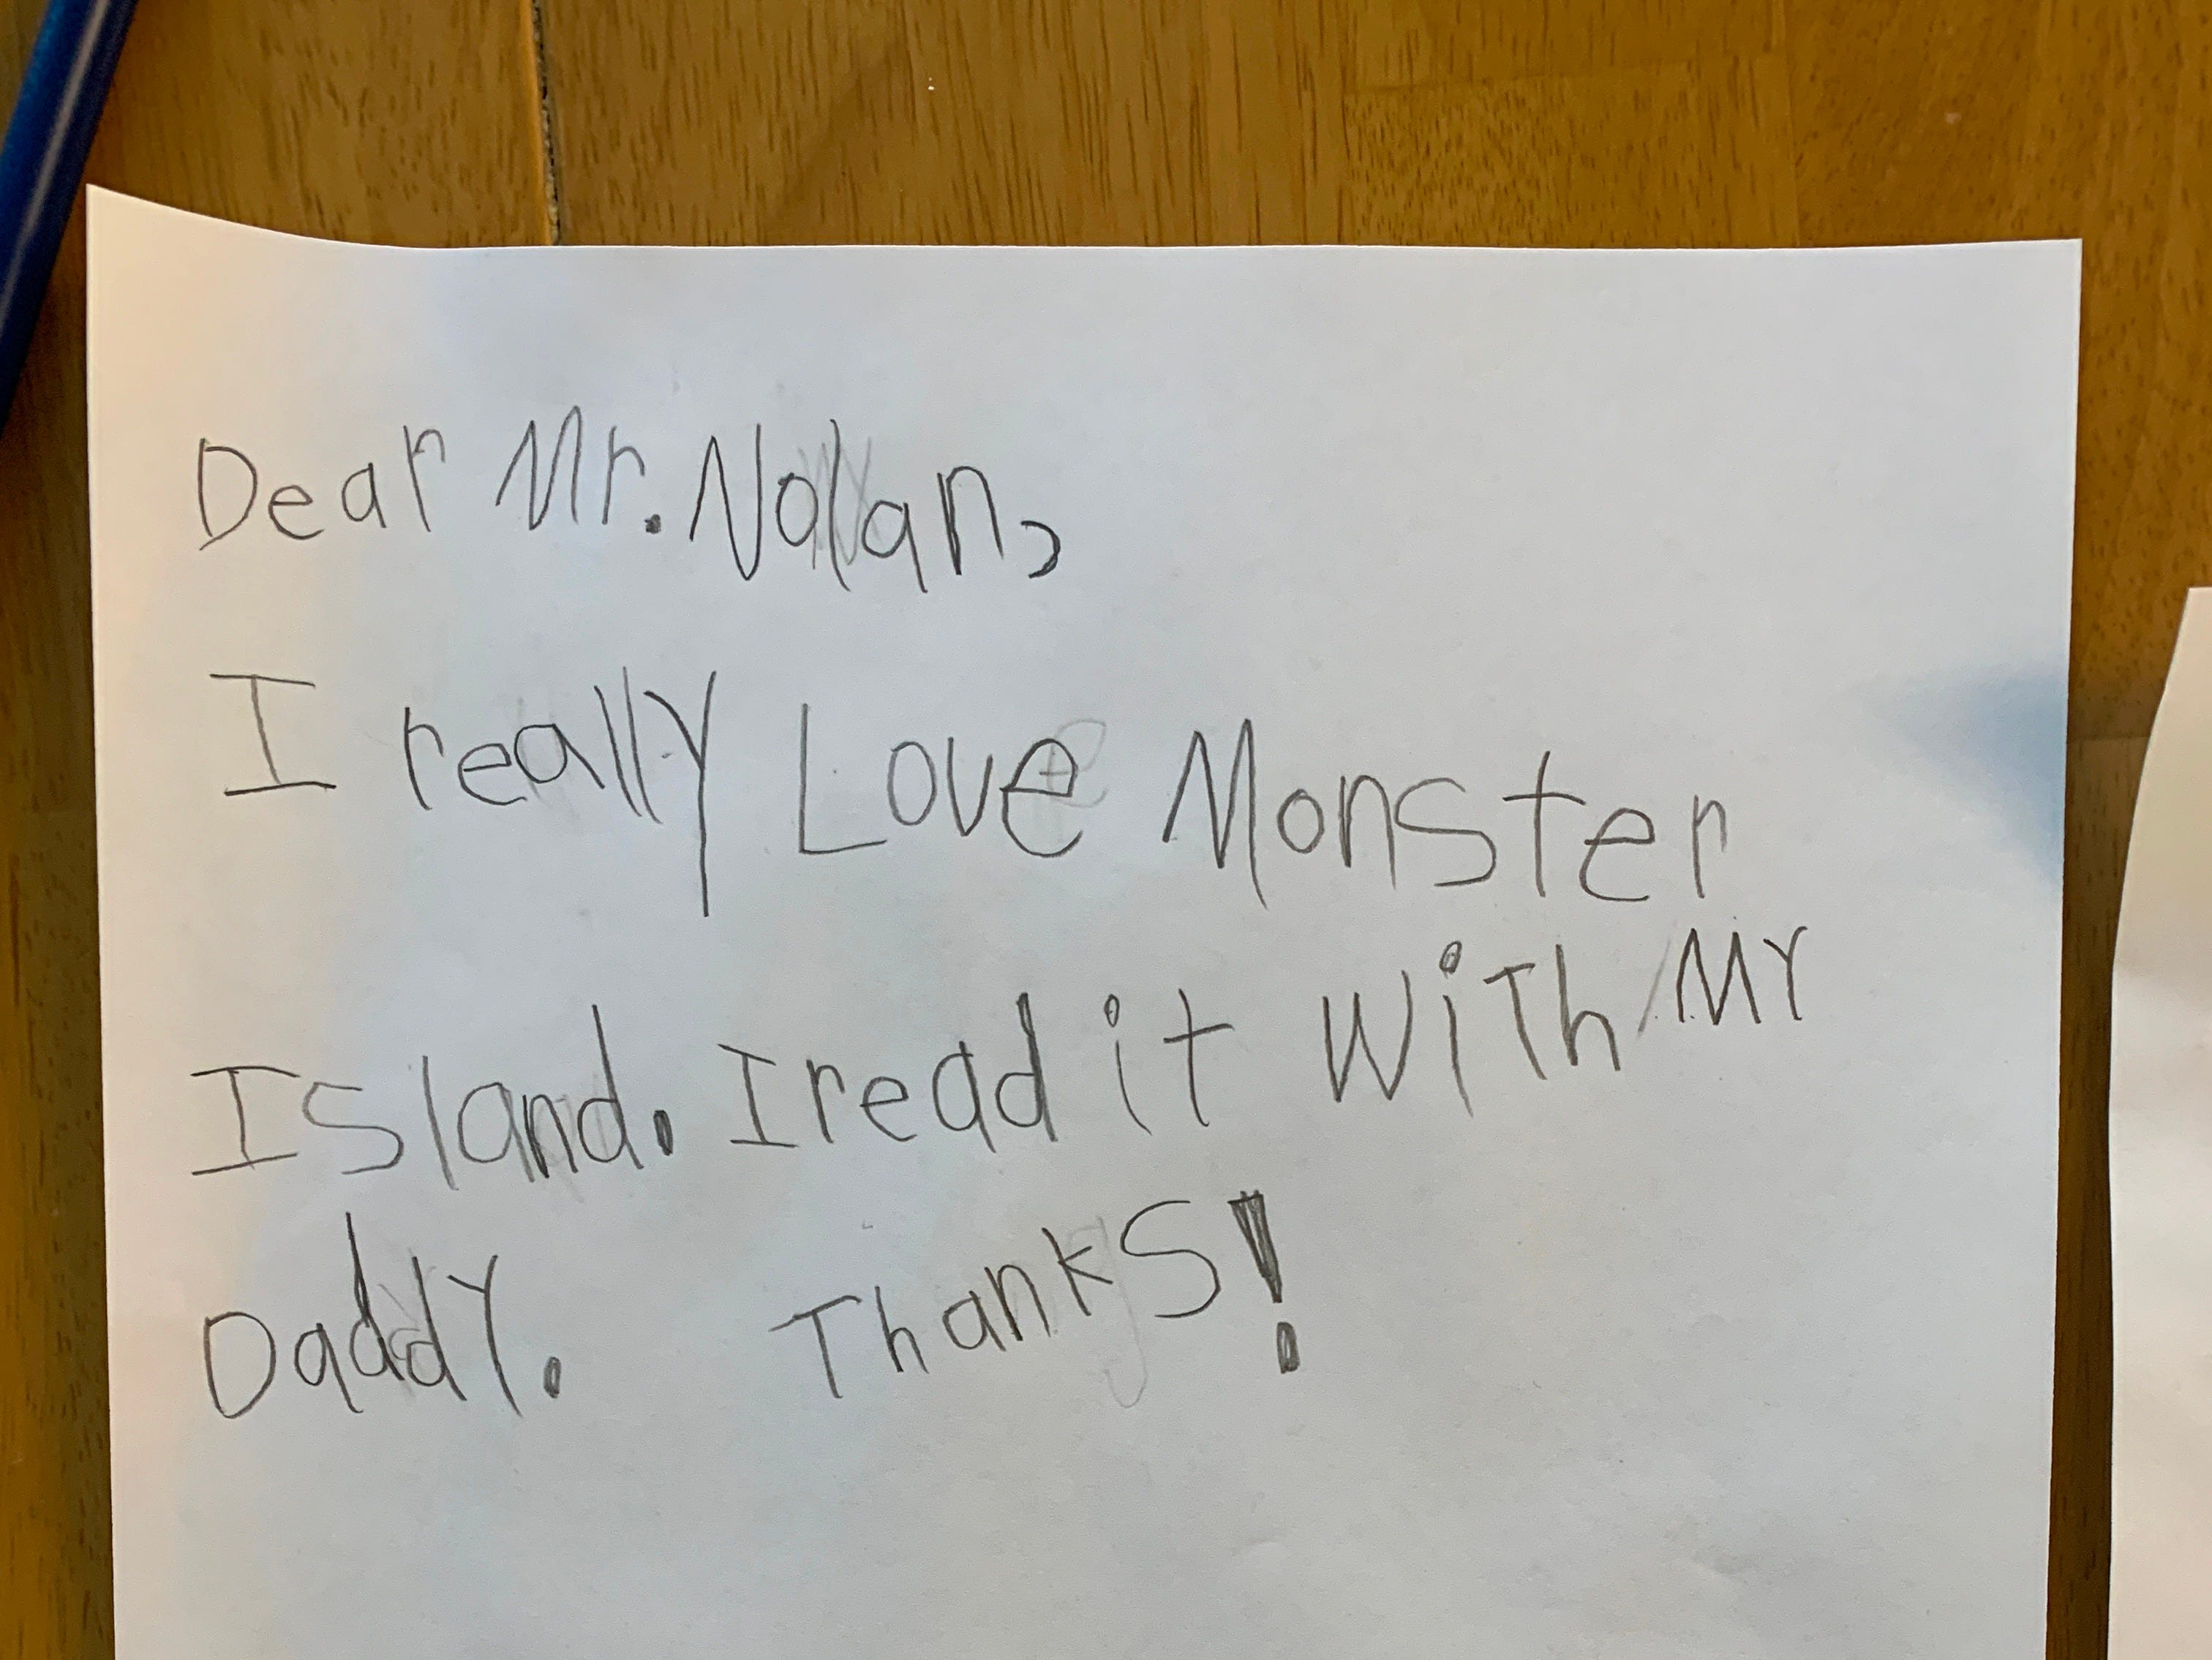 Dear Mr. Nolan,
I really Love Monster
Island. I read it With My
Daddy. Thanks!